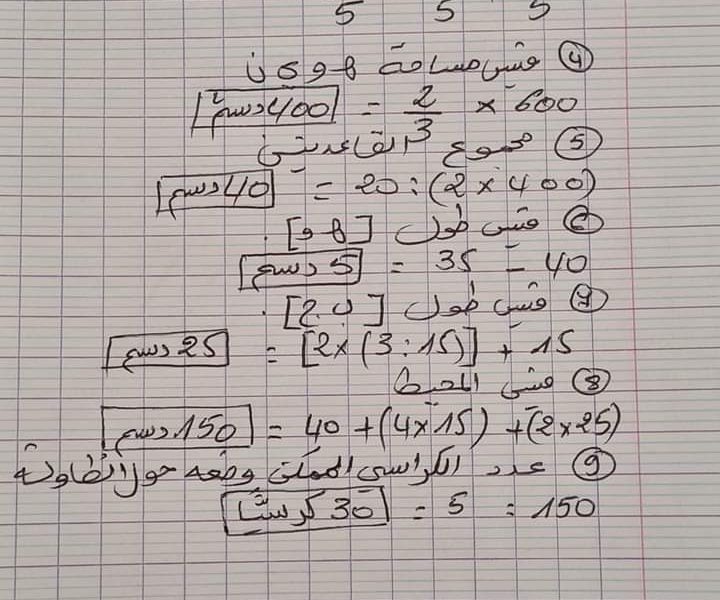 5 5 5
④ قيس مساحة هـ و ك ن
600 × 2/3 = 400 دسم²
⑤ مجموع القاعدتين
(400 × 2) : 20 = 40 دسم
⑥ قيس طول [هـ و].
40 - 35 = 5 دسم
⑦ قيس طول [ب ج].
15 + [(15 : 3) × 2] = 25 دسم
⑧ قيس المحيط
(25×2) + (15×4) + 40 = 150 دسم
⑨ عدد الكراسي الممكن وضعه حول الطاولة
150 : 5 = 30 كرسيا